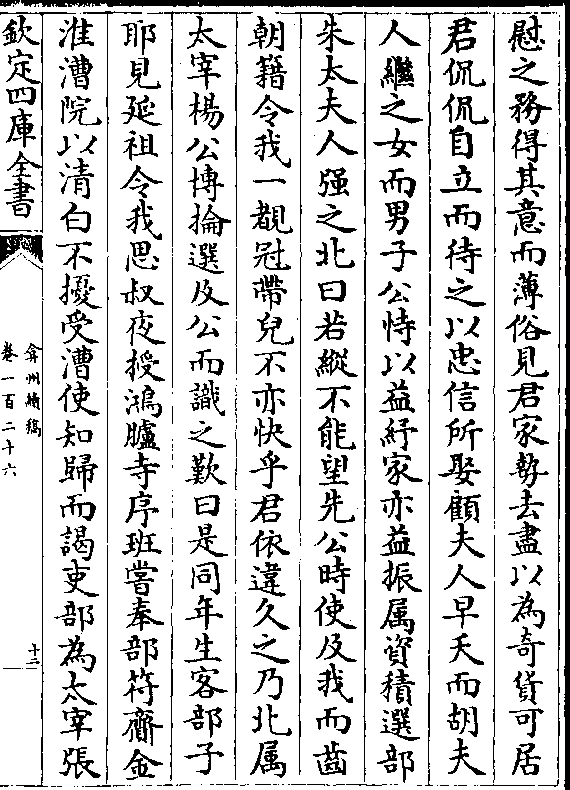 慰之務得其意而薄俗見君家勢去盡以為奇貨可居
君侃侃自立而待之以忠信所娶顧夫人早夭而胡夫
人繼之女而男子公恃以益紓家亦益振属資積選部
朱太夫人强之北曰若縱不能望先公時使及我而齒
朝籍令我一覩冠帶兒不亦快乎君依違久之乃北属
太宰楊公博掄選及公而識之歎曰是同年生客部子
耶見延祖令我思叔夜授鴻臚寺序班嘗奉部符齎金
淮漕院以清白不擾受漕使知歸而謁吏部為太宰張
欽定四庫全書
弇州續稿
卷一百二十六
十二